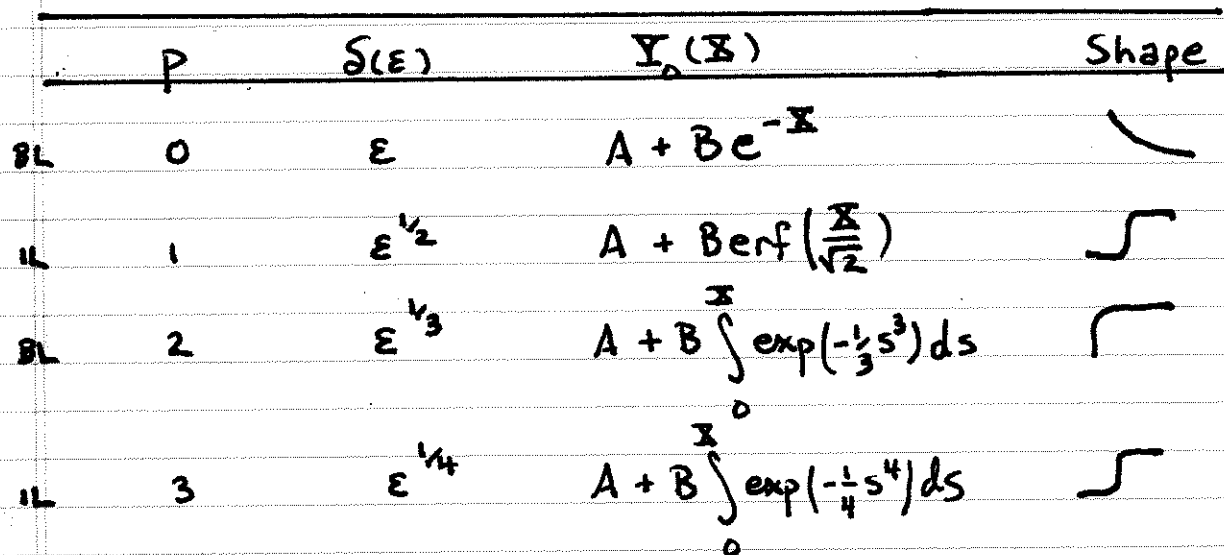 P δ(ε) Y₀(X) Shape
BL 0 ε A + Be^{-X}
IL 1 ε^{1/2} A + B erf(X/√2)
BL 2 ε^{1/3} A + B ∫₀^X exp(-⅓s³)ds
IL 3 ε^{1/4} A + B ∫₀^X exp(-¼s⁴)ds